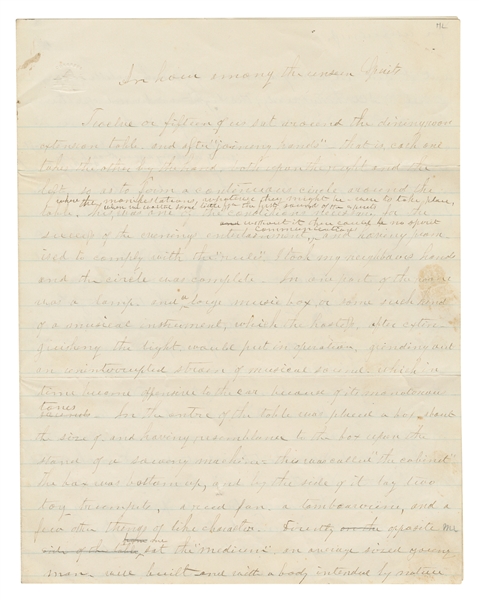 ML
An hour among the unseen Spirits
Twelve or fifteen of us sat around the dining room
extension table, and after "joining hands" that is each one
taking the other by the hand both upon the right and the
left, so as to form a continuous circle around the
where the manifestations, whatever they might be were to take place,
table. This was one of the conditions necessary for the
and without it there could be no spirit
communication
success of the evening entertainment, and having prom
ised to comply with the "rules" I took my neighbors hands
and the circle was complete. In one part of the room
was a lamp, and a large music box or some such kind
of a musical instrument, which the hostess, after exten
guishing the light, would put in operation, grinding out
an uninterrupted stream of musical sound which in
time became offensive to the ear because of its monotonous
tones
In the centre of the table was placed a box about
the size of and having resemblance to the box upon the
stand of a sewing machine this was called "the cabinet"
The box was bottom up, and by the side of it lay two
toy trumpets, a reed fan, a tambourine, and a
few other things of like character. Directly on the opposite me
side of the table before me sat the "medium" an average sized young
man, well built and with a body intended by nature